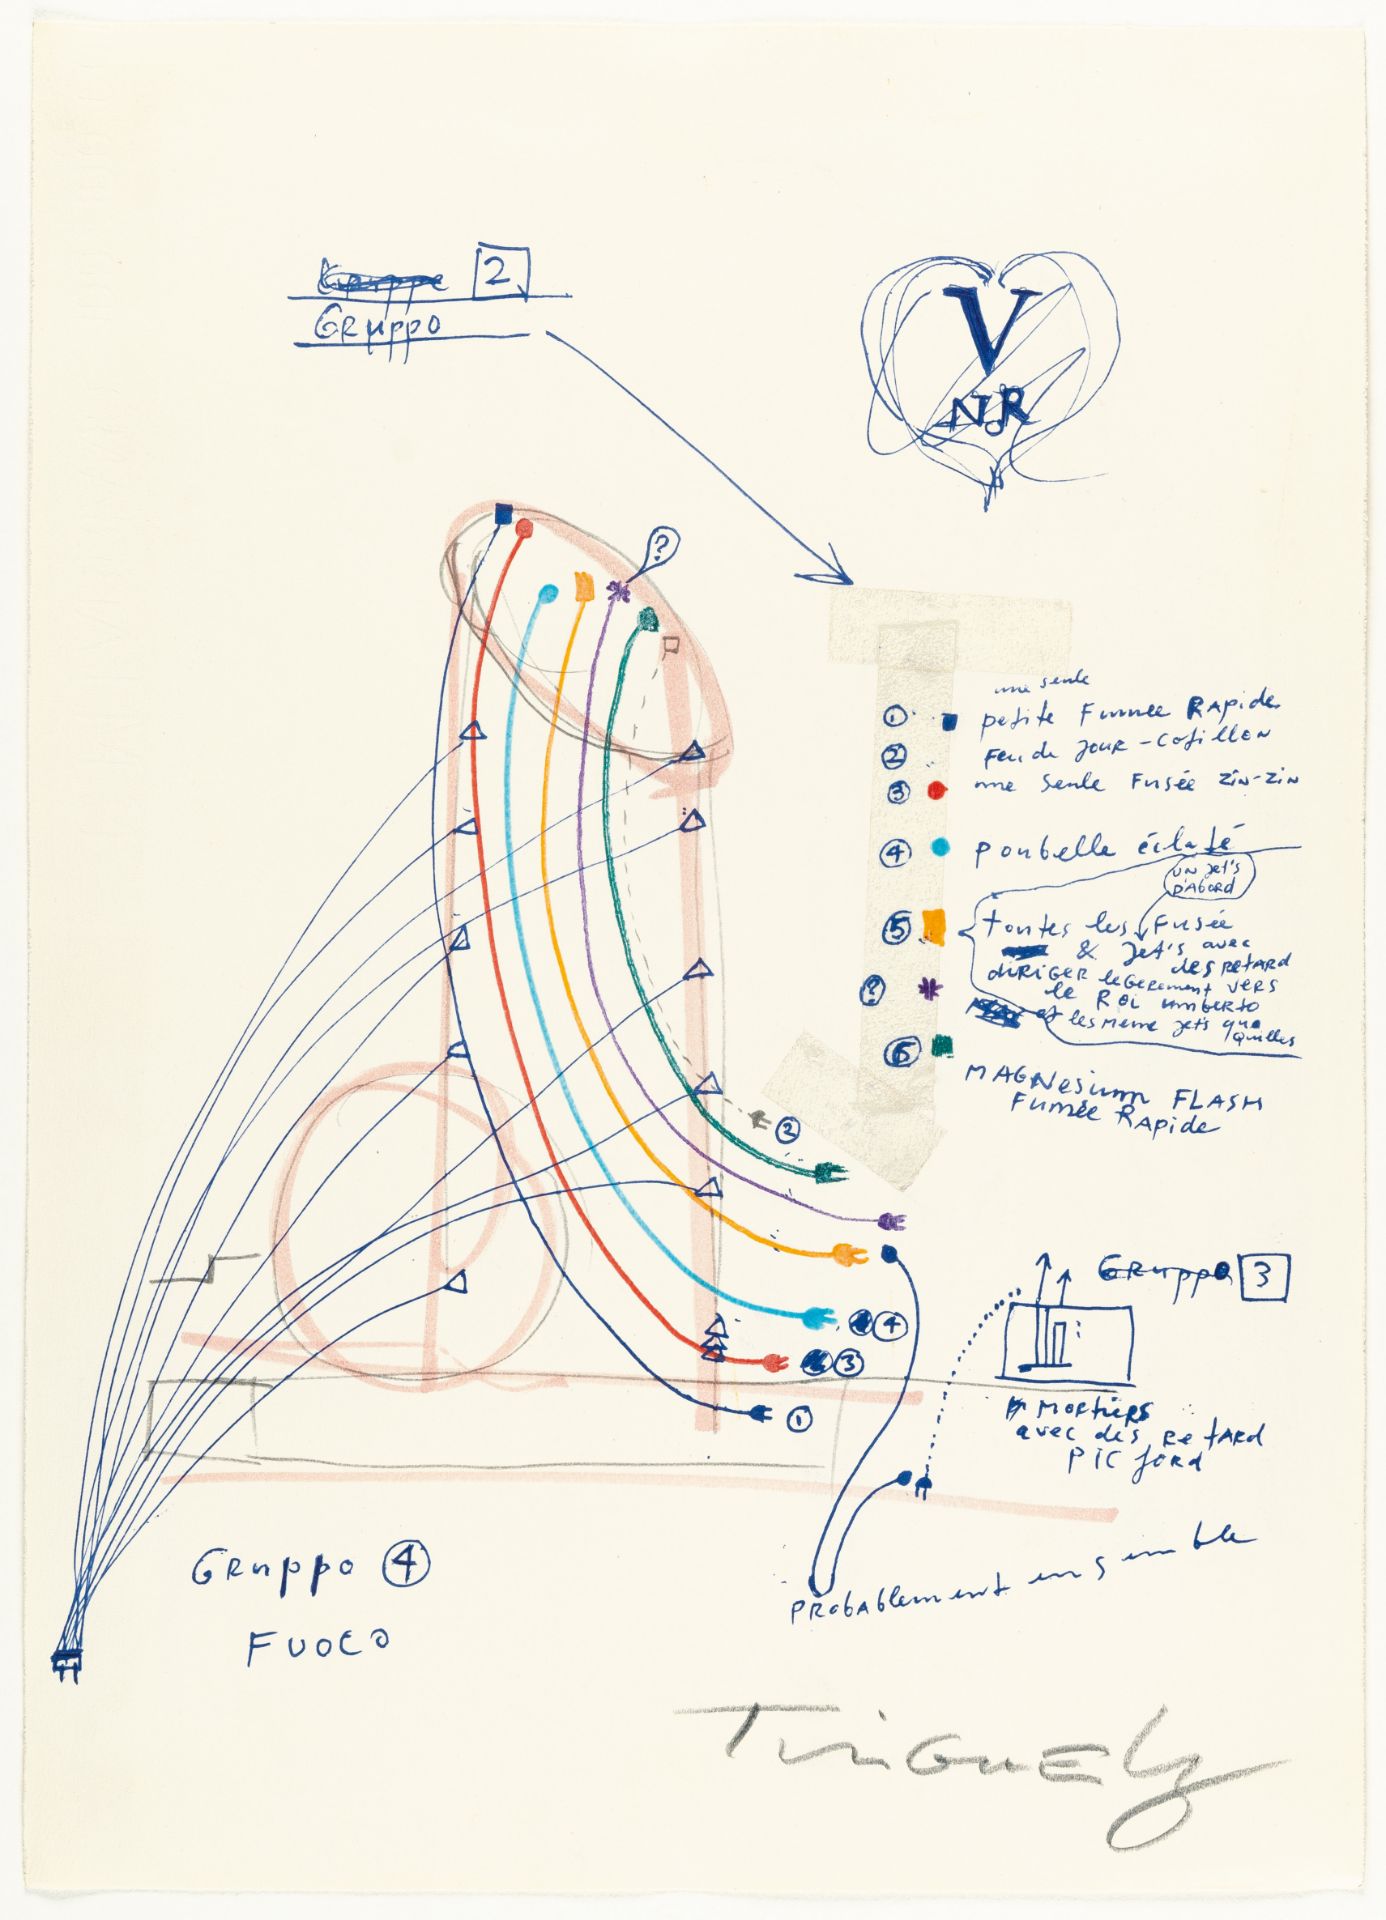 Gruppe 2
Gruppo
V
NR
?
une seule
① petite Fumée Rapide
② Feu de Jour-Cotillon
③ une seule Fusée Zin-Zin
④ poubelle éclaté
UN Jet's
D'ABORD
⑤ toutes les Fusée
& Jet's avec
des RETARD
DIRIGER legerement VERS
?
le Roi umberto
et les meme jet's que
quilles
⑥
MAGNesium FLASH
Fumée RApide
②
④
③
①
GRuppo 3
MORTIERS
avec des RetARd
PIC ford
PRobAblement ensemble
GRuppo ④
FUOCO
TinGuEly